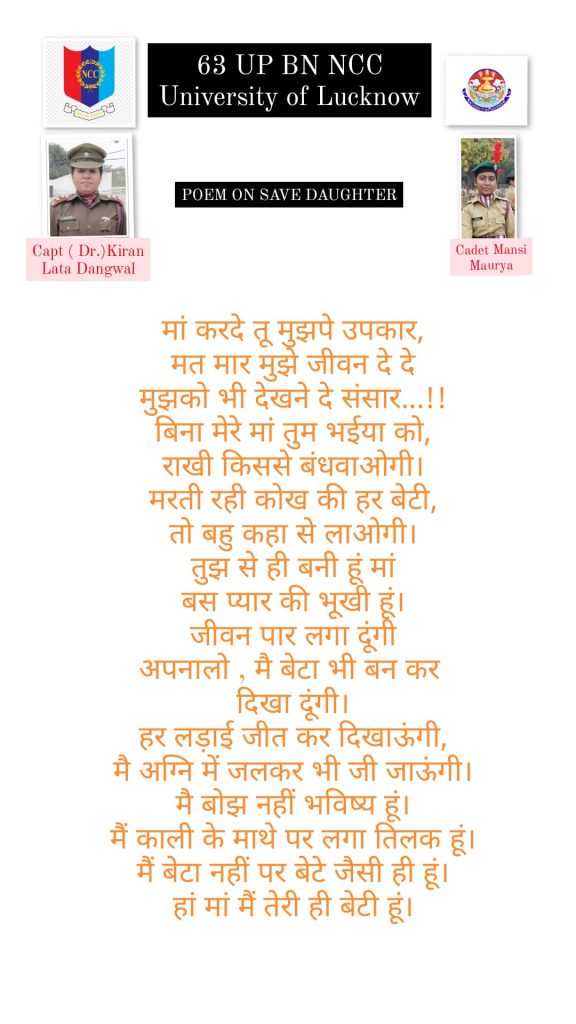 NCC
63 UP BN NCC
University of Lucknow
POEM ON SAVE DAUGHTER
Capt ( Dr.)Kiran
Lata Dangwal
Cadet Mansi
Maurya
मां करदे तू मुझपे उपकार,
मत मार मुझे जीवन दे दे
मुझको भी देखने दे संसार...!!
बिना मेरे मां तुम भईया को,
राखी किससे बंधवाओगी।
मरती रही कोख की हर बेटी,
तो बहु कहा से लाओगी।
तुझ से ही बनी हूं मां
बस प्यार की भूखी हूं।
जीवन पार लगा दूंगी
अपनालो , मै बेटा भी बन कर
दिखा दूंगी।
हर लड़ाई जीत कर दिखाऊंगी,
मै अग्नि में जलकर भी जी जाऊंगी।
मै बोझ नहीं भविष्य हूं।
मैं काली के माथे पर लगा तिलक हूं।
मैं बेटा नहीं पर बेटे जैसी ही हूं।
हां मां मैं तेरी ही बेटी हूं।